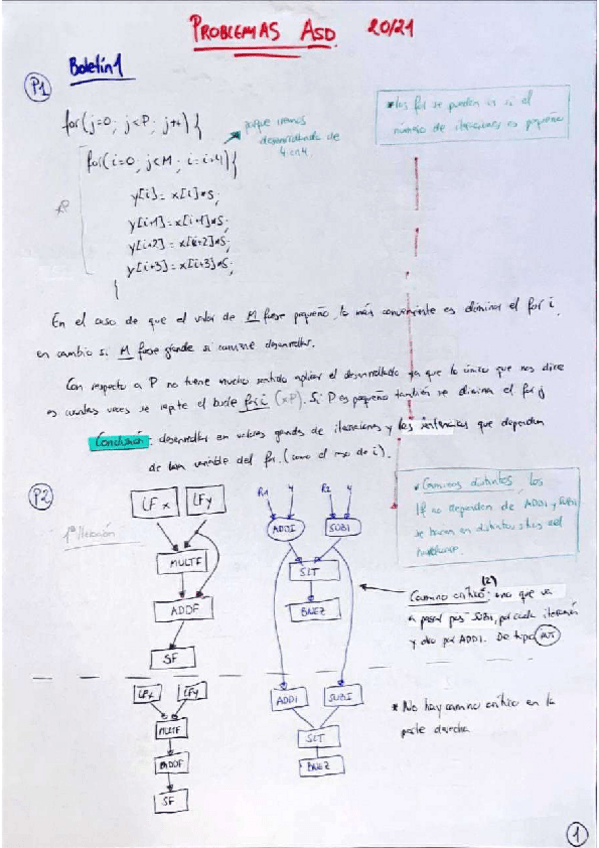 PROBLEMAS ASD. 20/21
Boletín 1
P1
for(j=0; j<P; j++){
for(i=0; j<M; i=i+4){
y[i]=x[i]*S;
y[i+1]=x[i+1]*S;
y[i+2]=x[i+2]*S;
y[i+3]=x[i+3]*S;
}
xP
porque vamos
desenrollado de
4 en 4.
* los for se pueden si el
número de iteraciones es pequeño
En el caso de que el valor de M fuese pequeño, lo más conveniente es eliminar el for i,
en cambio si M fuese grande si conviene desenrollar.
Con respecto a P no tiene mucho sentido aplicar el desenrollado ya que lo único que nos dice
es cuantas veces se repite el bucle for i (xP). Si P es pequeño también se elimina el for j
Conclusión: desenrollar en valores grandes de iteraciones y las sentencias que dependen
de una variable del for. (como el caso de i).
P2
1ª Iteración
LFx
LFy
MULTF
ADDF
SF
R1 4
R2 4
ADDI
SUBI
SLT
BNEZ
* Caminos distintos, los
LF no dependen de ADDI y SUBI
se hacen en distintos del
hardware.
Camino crítico (2): uno que va
a pasar por SUBI, por cada iteración
y otro por ADDI. De tipo
LFx
LFy
MULTF
ADDF
SF
ADDI
SUBI
SLT
BNEZ
* No hay camino crítico en la
parte derecha
1